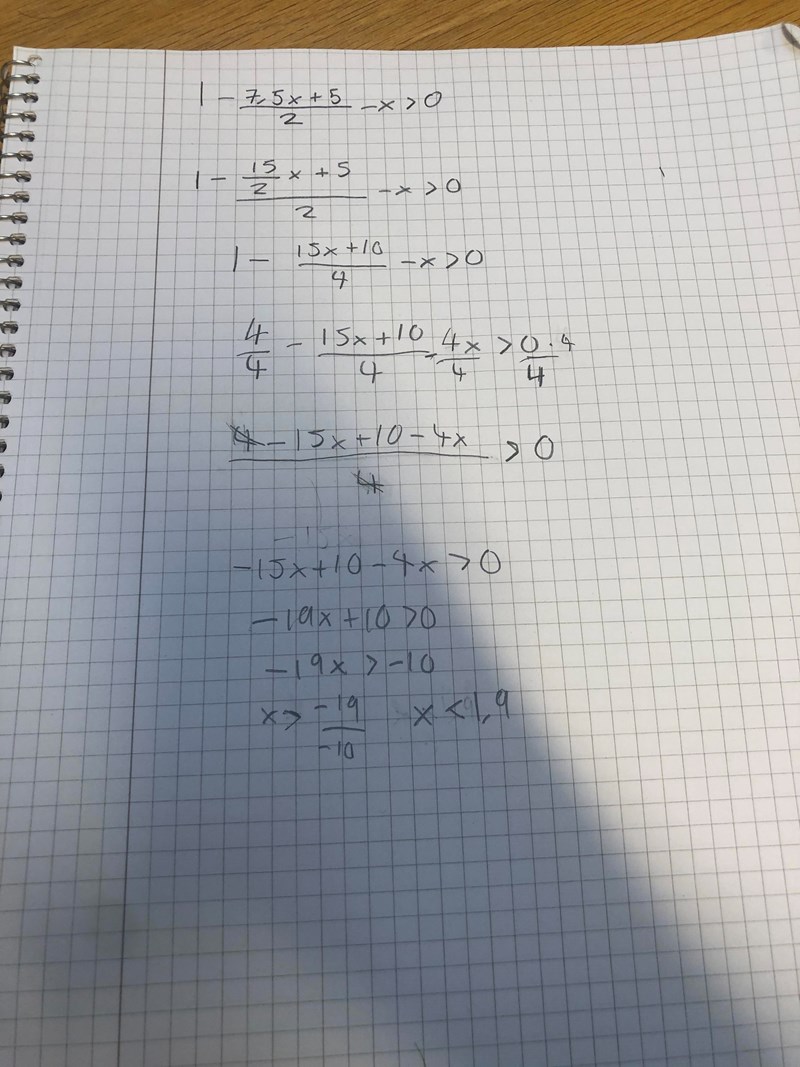 1 - (7,5x+5)/2 - x > 0
1 - (15/2 x + 5)/2 - x > 0
1 - (15x+10)/4 - x > 0
4/4 - (15x+10)/4 - 4x/4 > 0·4/4
(4 - 15x+10-4x)/4 > 0
-15
-15x+10-4x > 0
-19x+10 > 0
-19x > -10
x > -19/-10 x < 1,9